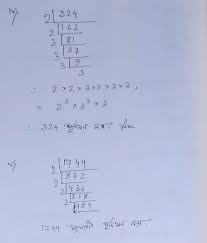 iv)
2 | 324
2 | 162
3 | 81
3 | 27
3 | 9
3
∴ 2 × 2 × 3 × 3 × 3 × 3
= 2² × 3³ × 3
∴ 324 পূর্ণঘন নয়
v)
2 | 1744
2 | 872
2 | 436
2 | 218
109
1744 পূর্ণঘন নয়